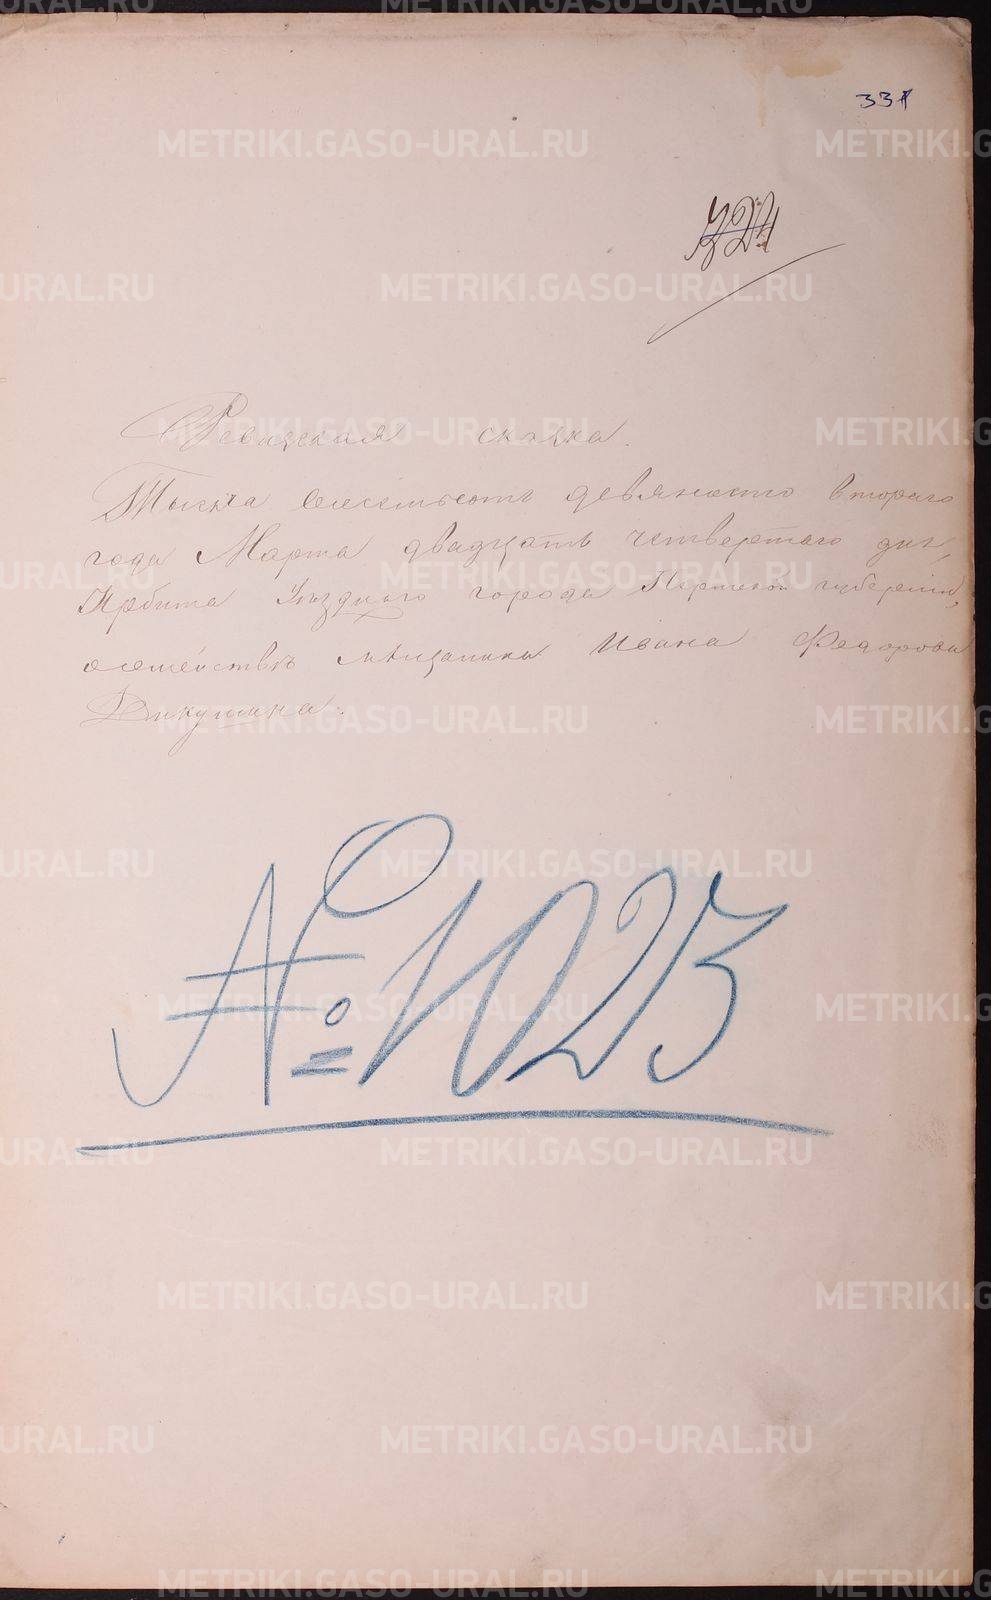 331
324
Ревизская сказка.
Тысяча восемьсотъ девяносто втораго
года Марта двадцать четвертаго дня,
Ирбита Уѣзднаго города Пермской губерніи,
о семействѣ мѣщанина Ивана Федорова
Дикушина.
№ 1023
METRIKI.GASO-URAL.RU